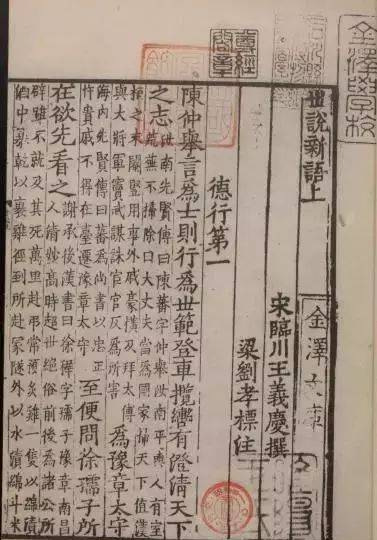 金澤學校
尊經閣章
世說新語上
宋臨川王義慶撰
梁劉孝標注
德行第一
陳仲舉言為士則行為世範登車攬轡有澄清天下
之志
汝南先賢傳曰陳蕃字仲舉汝南平輿人有室
荒蕪不掃除曰大丈夫當為國家掃天下值漢
桓之末閹豎用事外戚豪橫及拜太傅
與大將軍竇武謀誅宦官反為所害
為豫章太守
海內先賢傳曰蕃為尚書以忠正
忤貴戚不得在臺遷豫章太守
至便問徐孺子所
在欲先看之
謝承後漢書曰徐穉字孺子豫章南昌
人清妙高跱超世絕俗前後為諸公所
辟雖不就及其死萬里赴弔常預炙雞一隻以綿漬
酒中暴乾以裹雞徑到所赴冢隧外以水漬綿斗米